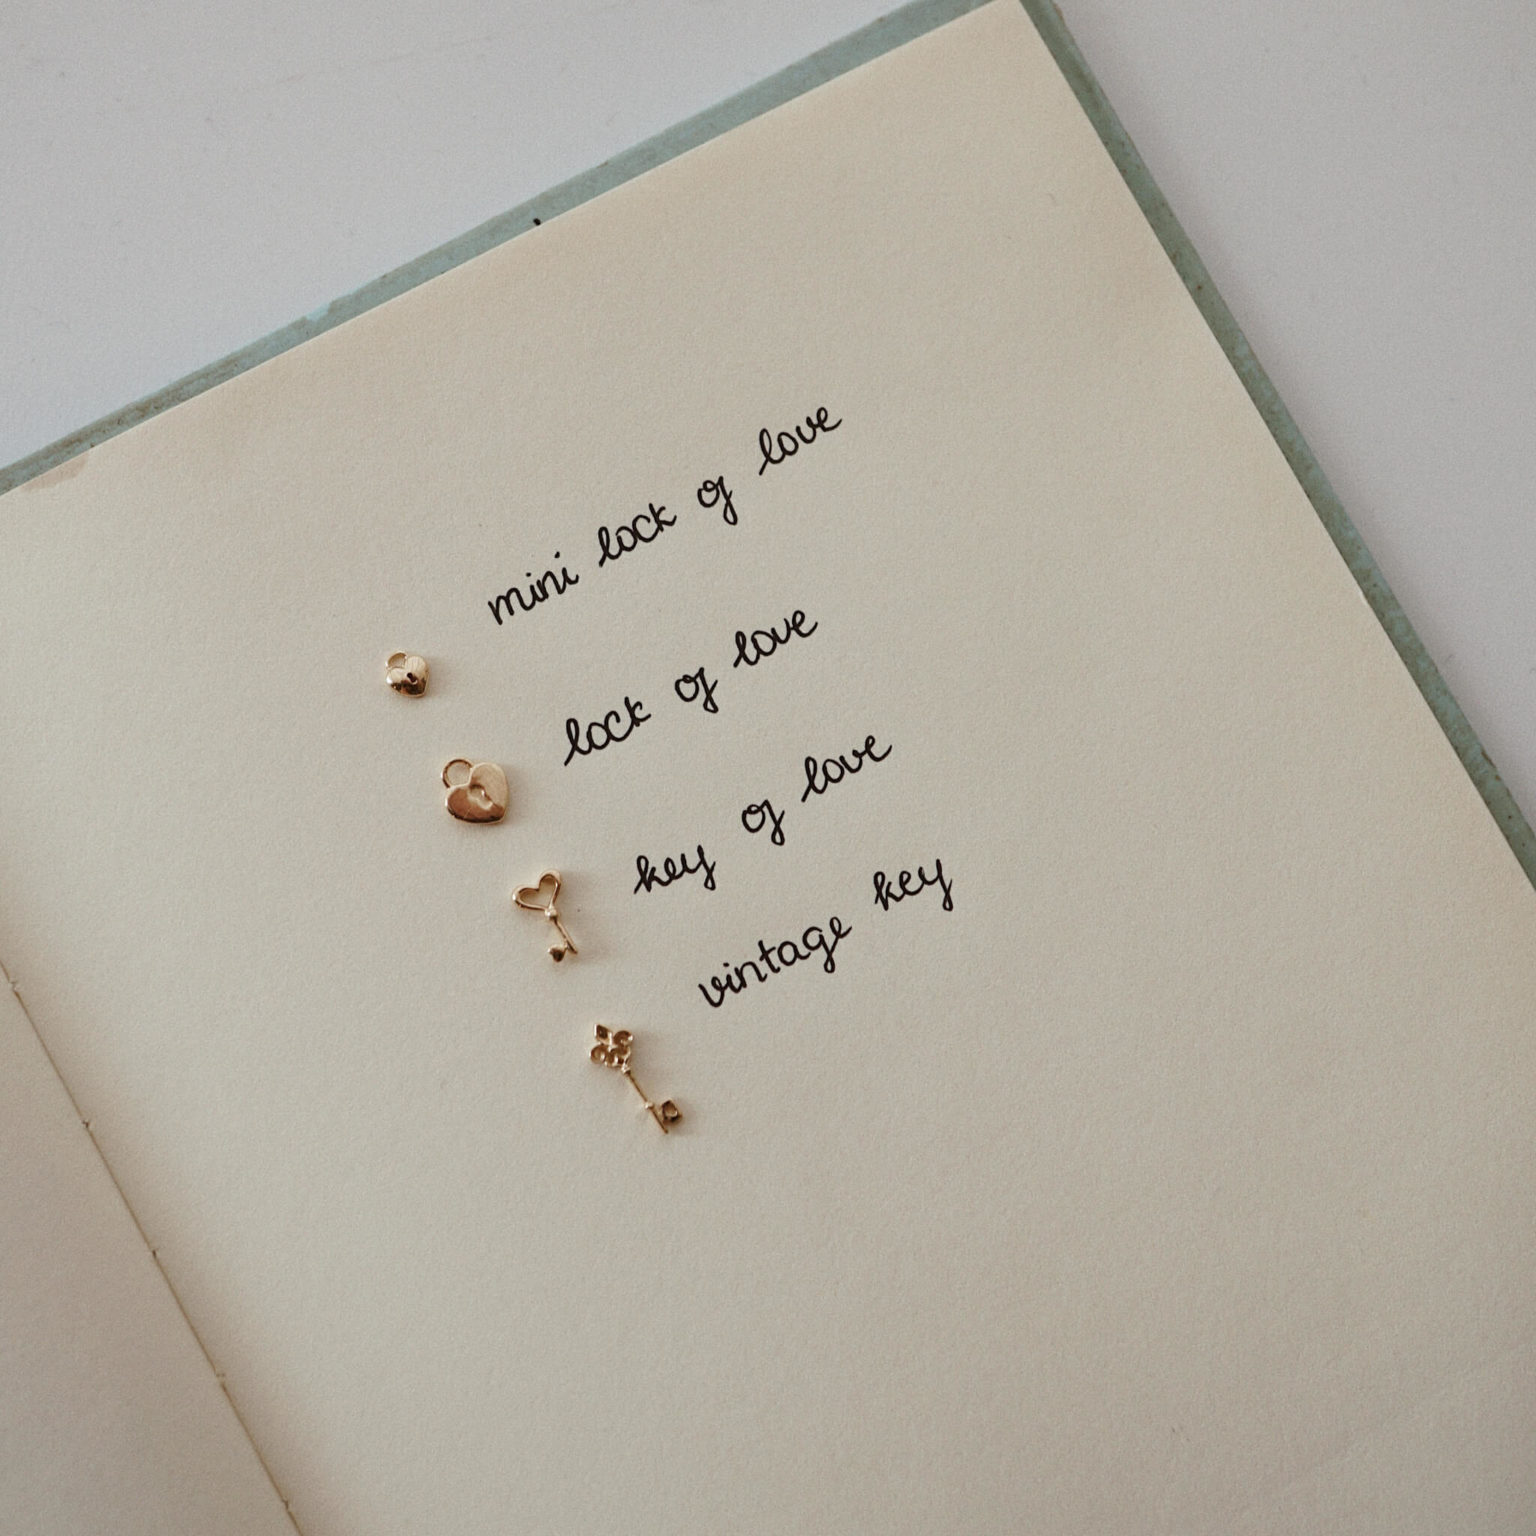 mini lock of love
lock of love
key of love
vintage key